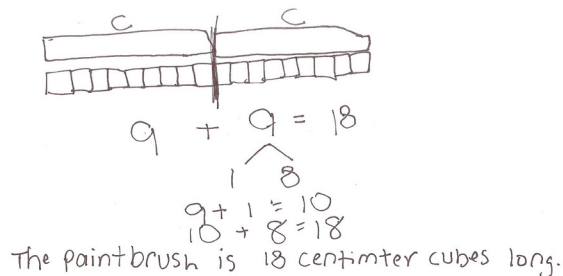 C C
9 + 9 = 18
1 8
9 + 1 = 10
10 + 8 = 18
The paintbrush is 18 centimter cubes long.